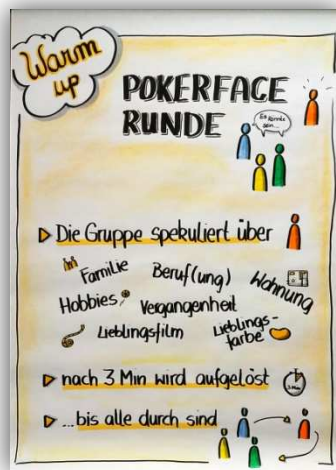 Warm
up
POKERFACE
RUNDE
Es könnte
sein...
Die Gruppe spekuliert über
Familie
Beruf(ung)
Wohnung
Hobbies
Vergangenheit
Lieblingsfilm
Lieblings-
farbe
nach 3 Min wird aufgelöst
3 Min
...bis alle durch sind